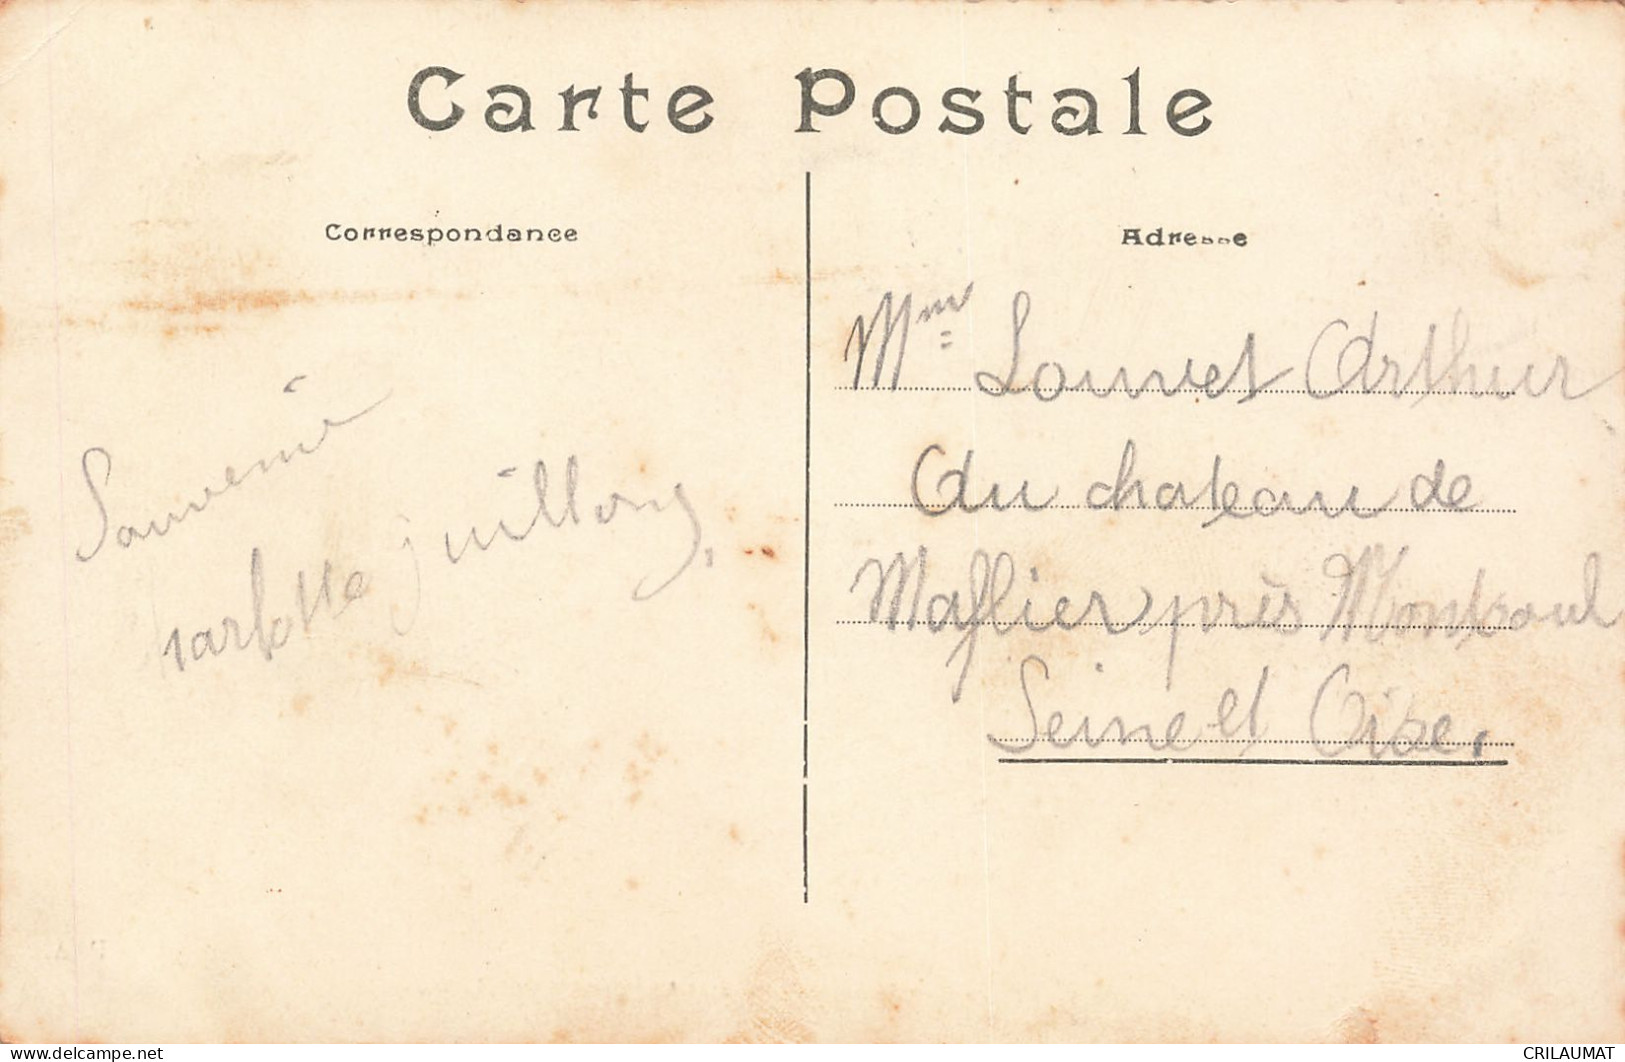 Carte Postale
Correspondance
Adresse
Souvenir
Mme Louvet Arthur
Au chateau de
Maflier près Montsoul
Seine et Oise.
delcampe.net
CRILAUMAT